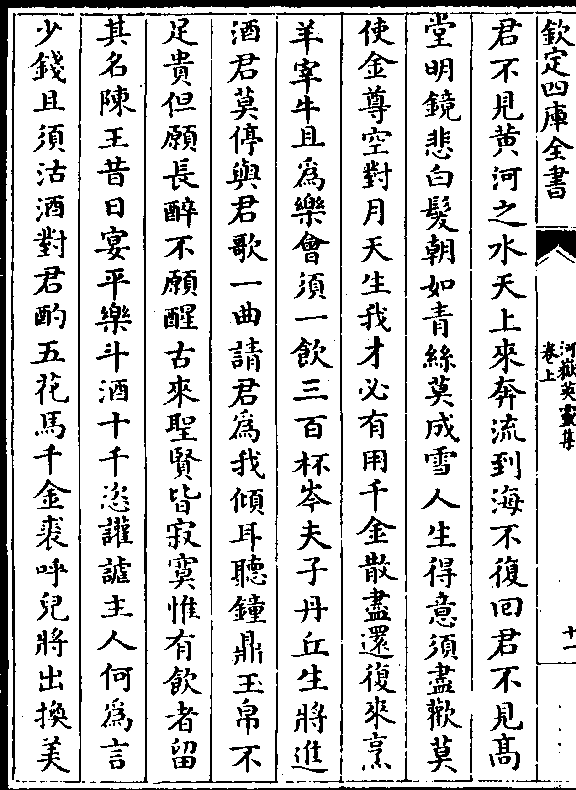 欽定四庫全書
河嶽英靈集
卷上
十一
君不見黄河之水天上來奔流到海不復回君不見髙
堂明鏡悲白髮朝如青絲莫成雪人生得意須盡歡莫
使金尊空對月天生我才必有用千金散盡還復來烹
羊宰牛且爲樂會須一飲三百杯岑夫子丹丘生將進
酒君莫停與君歌一曲請君爲我傾耳聽鐘鼎玉帛不
足貴但願長醉不願醒古來聖賢皆寂寞惟有飲者留
其名陳王昔日宴平樂斗酒十千恣讙謔主人何爲言
少錢且須沽酒對君酌五花馬千金裘呼兒將出換美